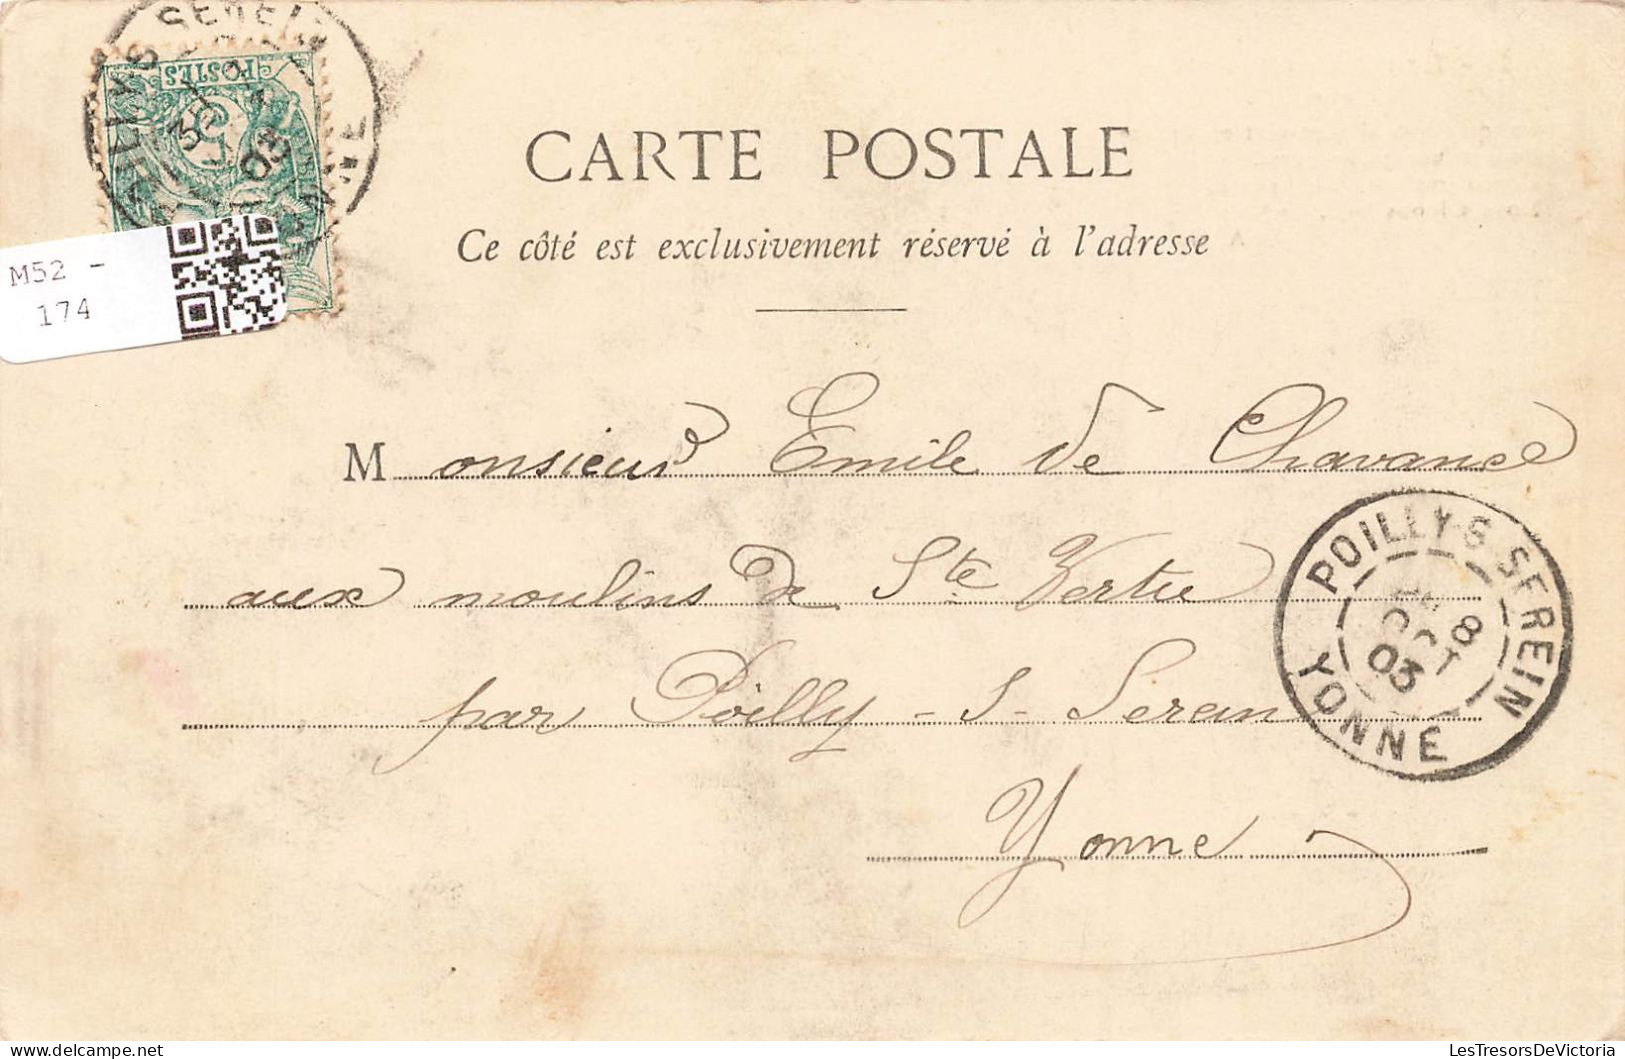 POSTES
5
03
M52 -
174
CARTE POSTALE
Ce côté est exclusivement réservé à l'adresse
Monsieur Emile de Chavance
aux moulins de Ste Vertu
par Poilly - S - Serein
Yonne
POILLY-S-SEREIN
8
OCT
03
YONNE
LesTresorsDeVictoria